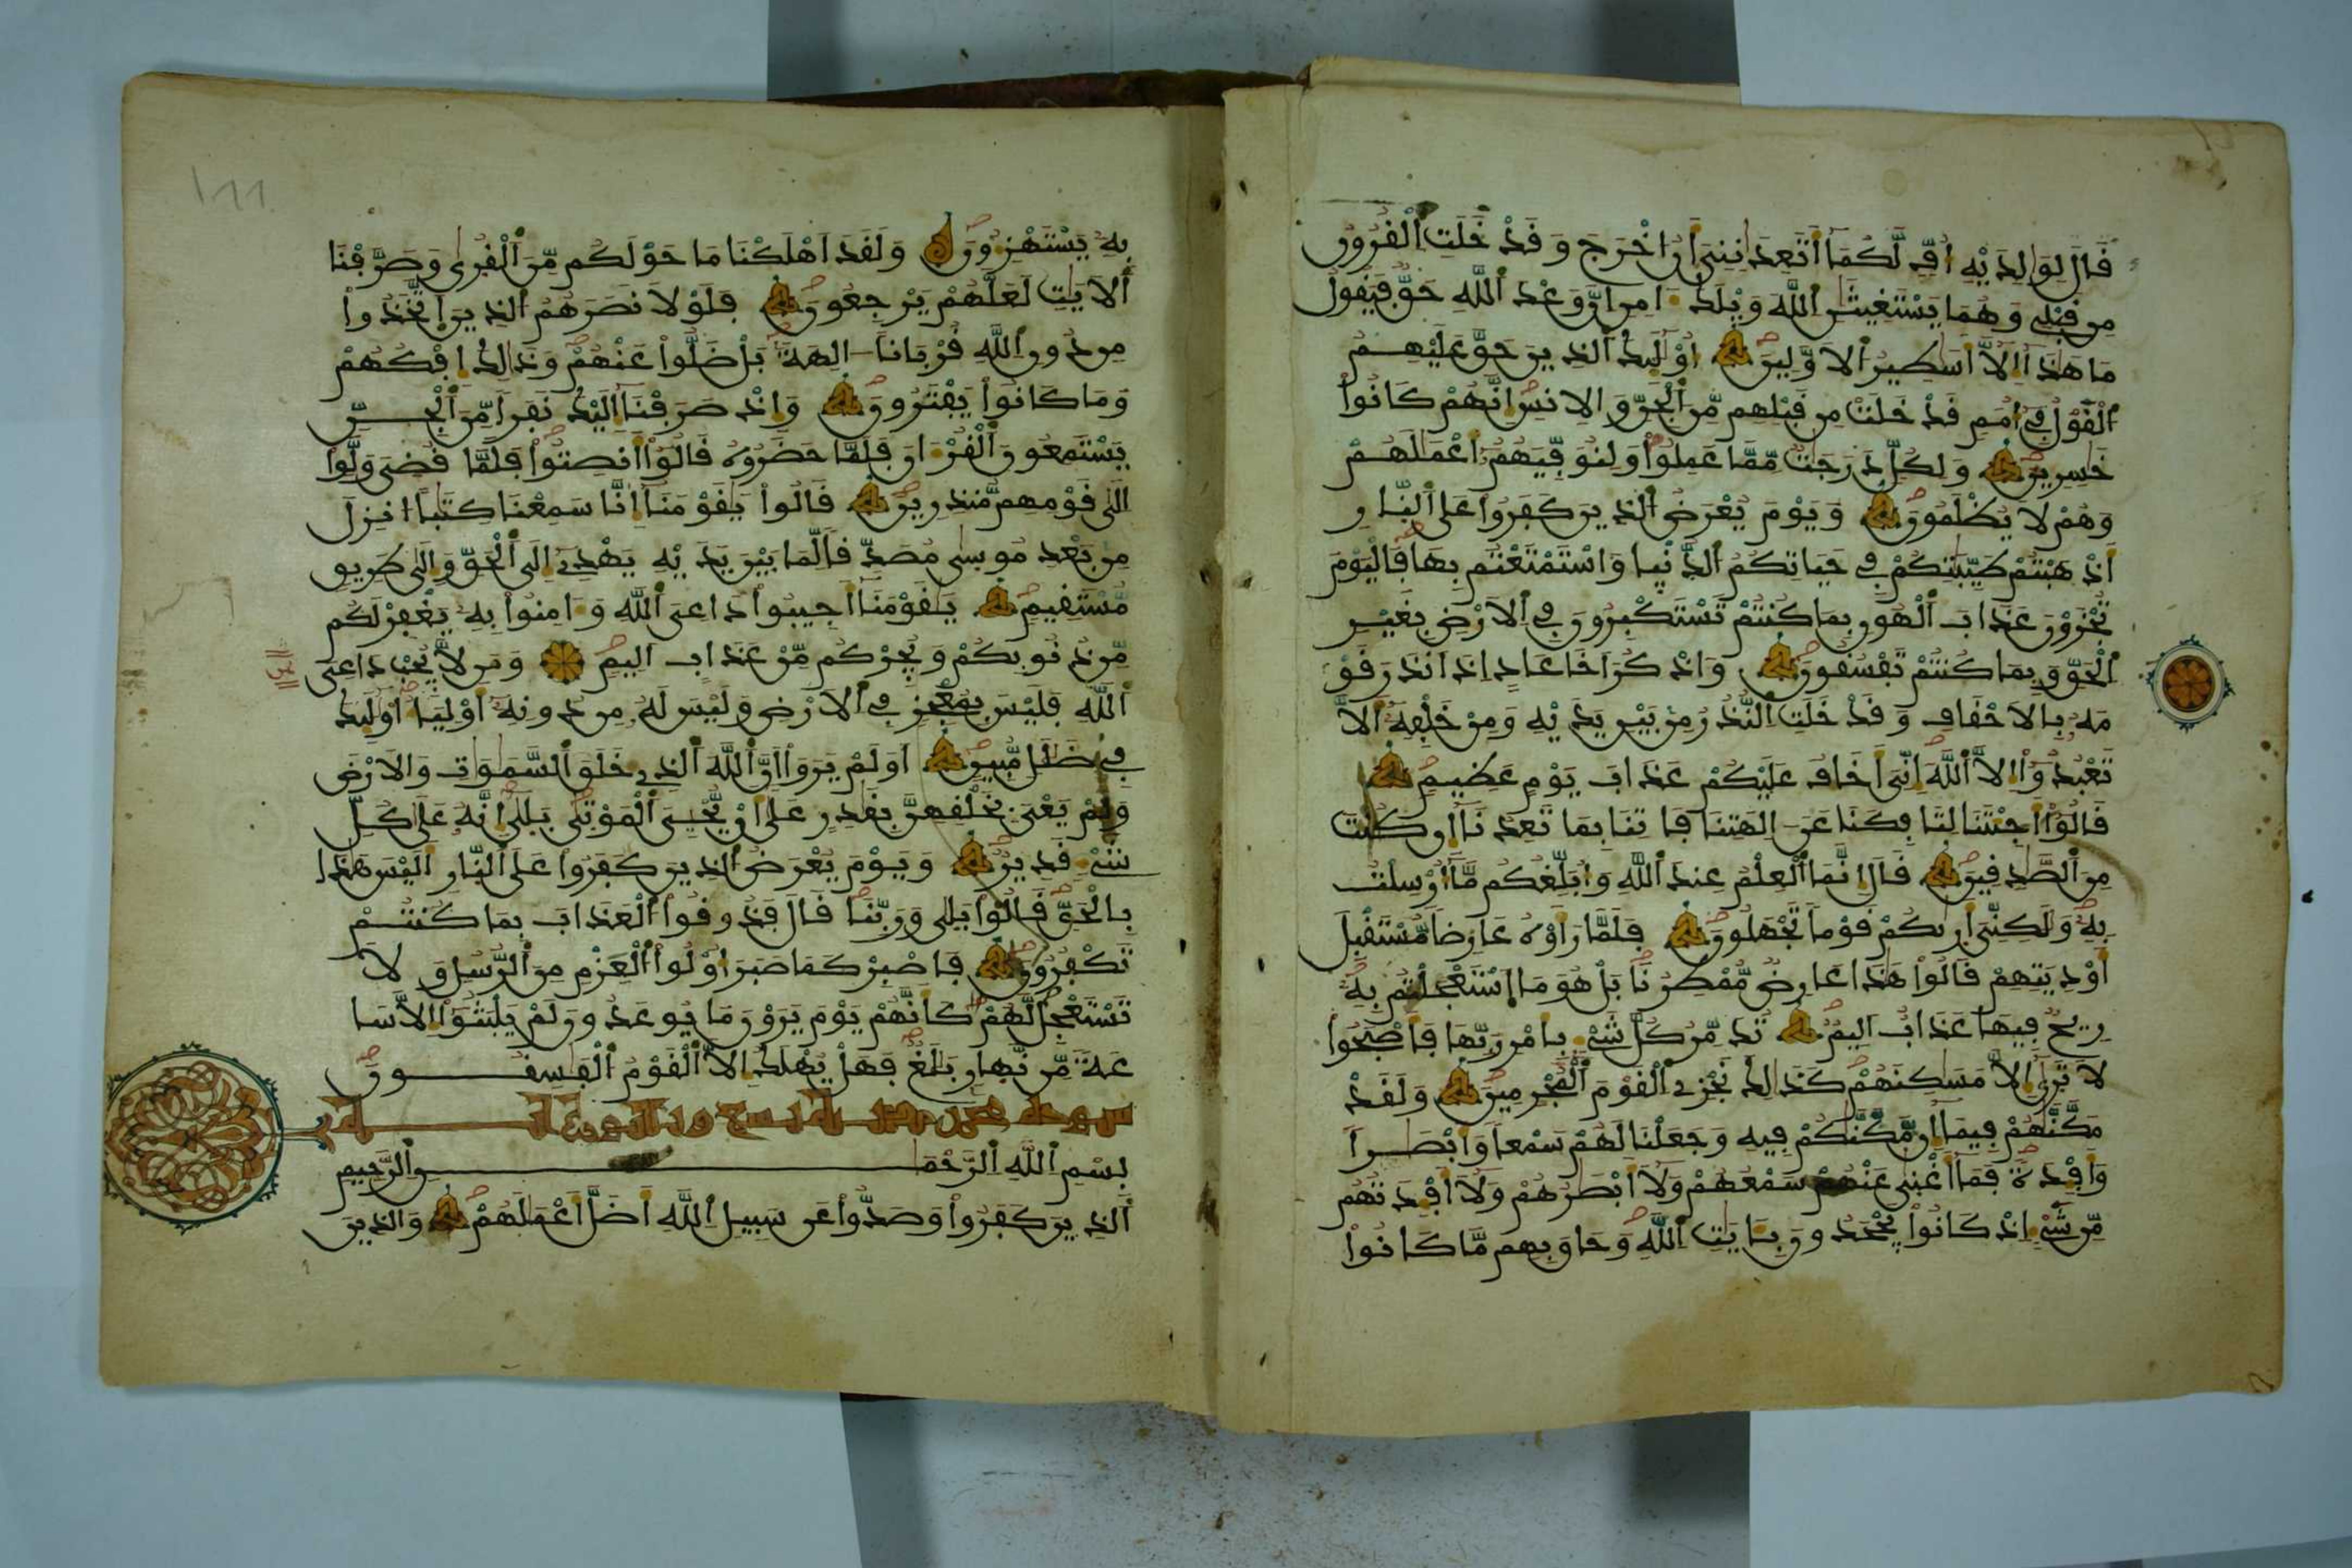 قال لوالديه اف لكما اتعدانني ان اخرج وقد خلت القرون
من قبلي وهما يستغيثن الله ويلك امن ان وعد الله حق فيقول
ما هذا الا اسطير الاولين اوليك الذين حق عليهم
القول في امم قد خلت من قبلهم من الجن والانس انهم كانوا
خسرين ولكل درجت مما عملوا ولنوفيهم اعملهم
وهم لا يظلمون ويوم يعرض الذين كفروا على النار
اذهبتم طيبتكم في حياتكم الدنيا واستمتعتم بها فاليوم
تجزون عذاب الهون بما كنتم تستكبرون في الارض بغير
الحق وبما كنتم تفسقون واذكر اخا عاد اذ انذر قو
مه بالاحقاف وقد خلت النذر من بين يديه ومن خلفه الا
تعبدوا الا الله اني اخاف عليكم عذاب يوم عظيم
قالوا اجيتنا لتافكنا عن الهتنا فاتنا بما تعدنا ان كنت
من الصدقين قال انما العلم عند الله وابلغكم ما ارسلت
به ولكني اريكم قوما تجهلون فلما راوه عارضا مستقبل
اوديتهم قالوا هذا عارض ممطرنا بل هو ما استعجلتم به
ريح فيها عذاب اليم تدمر كل شيء بامر ربها فاصبحوا
لا ترى الا مسكنهم كذلك نجزي القوم المجرمين ولقد
مكنهم فيما ان مكنكم فيه وجعلنا لهم سمعا وابصرا
وافدة فما اغنى عنهم سمعهم ولا ابصرهم ولا افدتهم
من شيء اذ كانوا يجحدون بايت الله وحاق بهم ما كانوا
به يستهزون ولقد اهلكنا ما حولكم من القرى وصرفنا
الايت لعلهم يرجعون فلولا نصرهم الذين اتخذوا
من دون الله قربانا الهة بل ضلوا عنهم وذلك افكهم
وما كانوا يفترون واذ صرفنا اليك نفرا من الجن
يستمعون القران فلما حضروه قالوا انصتوا فلما قضي ولوا
الى قومهم منذرين قالوا يقومنا انا سمعنا كتبا انزل
من بعد موسى مصدقا لما بين يديه يهدي الى الحق والى طريق
مستقيم يقومنا اجيبوا داعي الله وامنوا به يغفر لكم
من ذنوبكم ويجركم من عذاب اليم ومن لا يجب داعي
الله فليس بمعجز في الارض وليس له من دونه اوليا اوليك
في ضلل مبين اولم يروا ان الله الذي خلق السموت والارض
ولم يعي بخلقهن بقدر على ان يحيي الموتى بلى انه على كل
شيء قدير ويوم يعرض الذين كفروا على النار اليس هذا
بالحق قالوا بلى وربنا قال فذوقوا العذاب بما كنتم
تكفرون فاصبر كما صبر اولوا العزم من الرسل ولا
تستعجل لهم كانهم يوم يرون ما يوعدون لم يلبثوا الا سا
عة من نهار بلغ فهل يهلك الا القوم الفسقون
سورة محمد
بسم الله الرحمن الرحيم
الذين كفروا وصدوا عن سبيل الله اضل اعملهم والذين